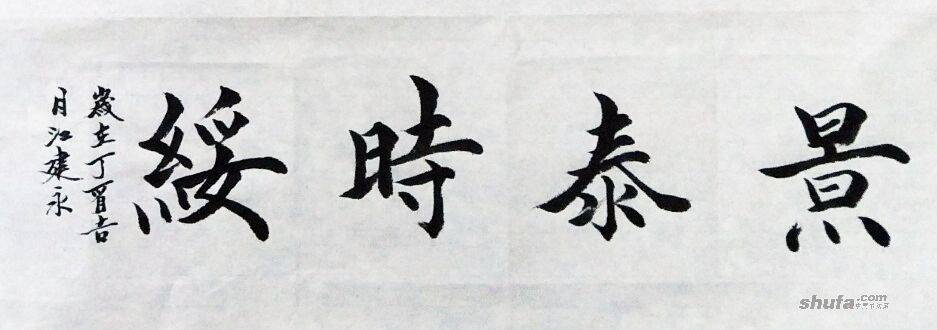 景泰時綏
歲在丁酉吉
月江建永
shufa.com